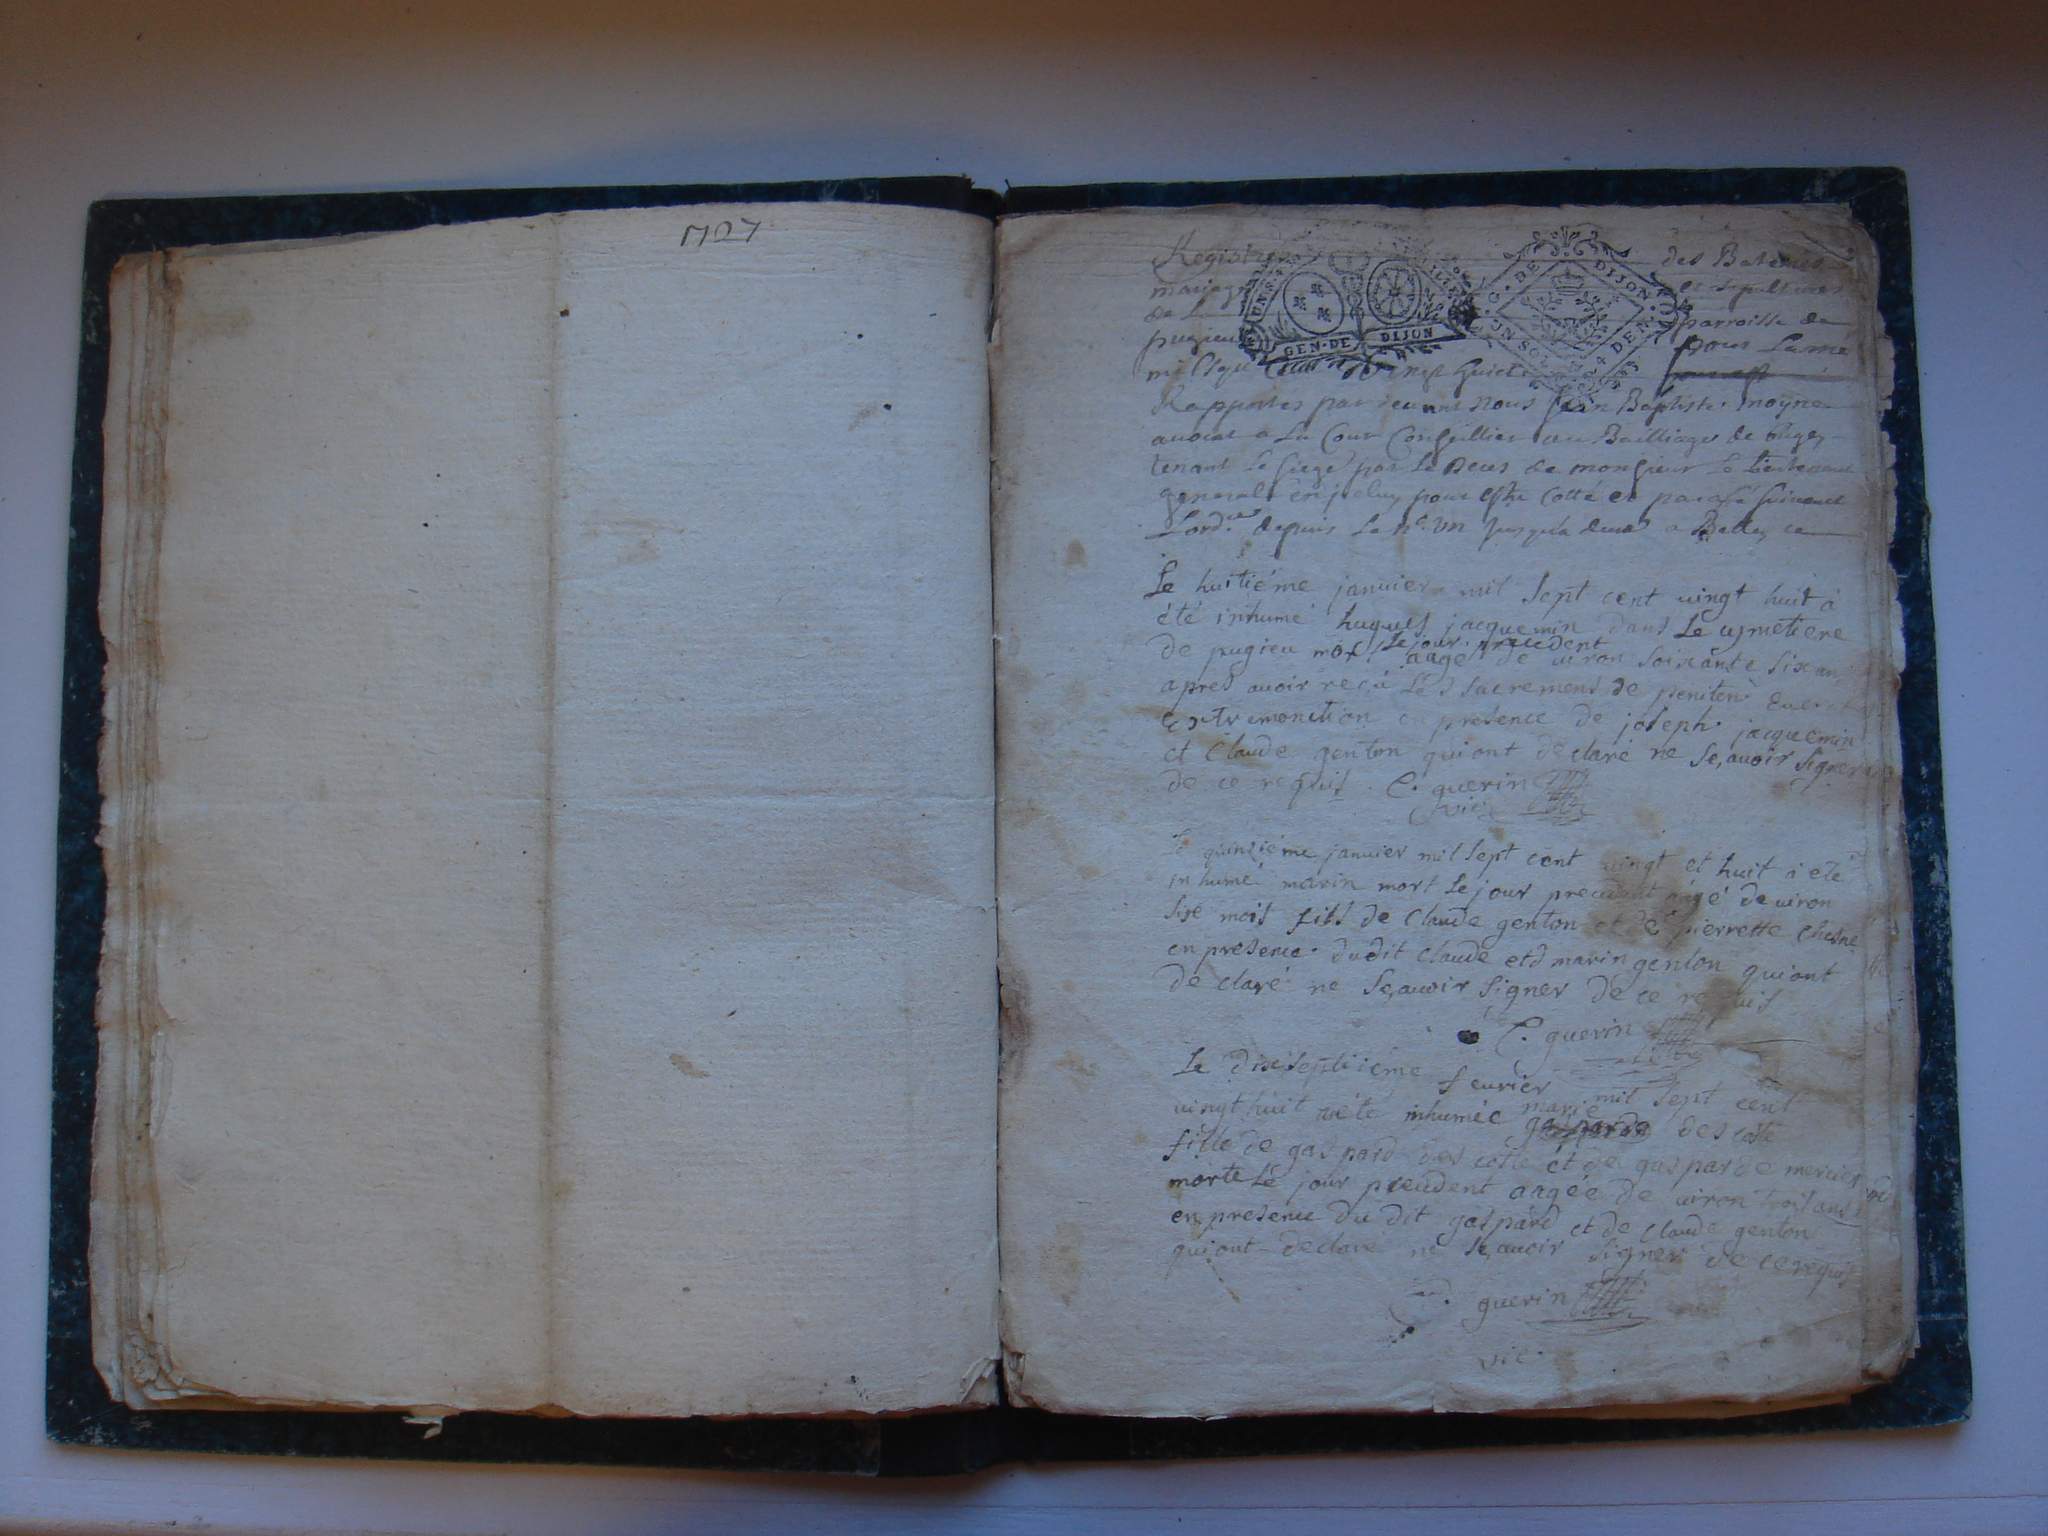 1727
Registre des Batemes
mariages et sepultures
de la parroisse de
pugieu pour Lanné
mil sept cent vingt huict
UN S.
GEN. DE DIJON
G. DE DIJON
UN SOL 4 DEN.
Rapportes par devant Nous Jean Baptiste moÿne
avocat a La Cour Conseillier au Bailliage de Bugey
tenant Le siege par Le Deces de monsieur Le Lieutenant
general en jceluy pour estre Cotté et parafé suivant
Lord.ce depuis Le n.o Un jusqua deux a Belley ce
Le huitiéme janvier mil sept cent vingt huit à
été inhumé hugues jacquemin dans Le cymetiere
de pugieu mort Le jour precedent
aagé de viron soixante six ans
apres avoir reçu Lés sacremens de peniten
extremonction en presence de joseph jacquemin
et Claude genton qui ont declaré ne sçavoir signer
de ce requis. C. guerin
vic.
Le quinziéme janvier mil sept cent vingt et huit à eté
inhumé marin mort Le jour precedent aagé de viron
sixe mois fils de Claude genton et de pierrette Chesne
en presence du dit Claude et d marin genton qui ont
de claré ne sçavoir signer de ce requis
C. guerin
Le dixseptiéme fevrier mil sept cent
vingt huit a été inhumée marie gasparde descôte
fille de gaspard des cotte et de gasparde mercier
morte Lé jour precedent aagée de viron trois ans
en presence du dit gaspard et de Claude genton
qui ont declaré ne sçavoir signer de ce requis
guerin
vic.